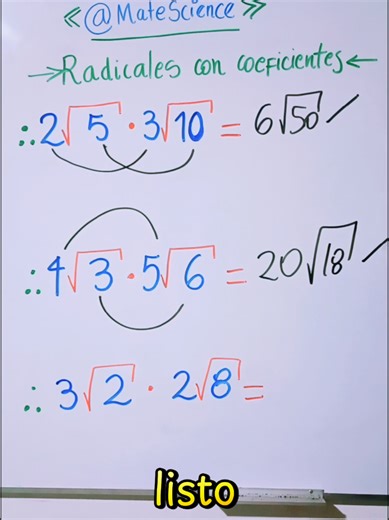 ≪@MateScience≫
→Radicales con coeficientes←
∴ 2√5 · 3√10 = 6√50
∴ 4√3 · 5√6 = 20√18
∴ 3√2 · 2√8 =
listo